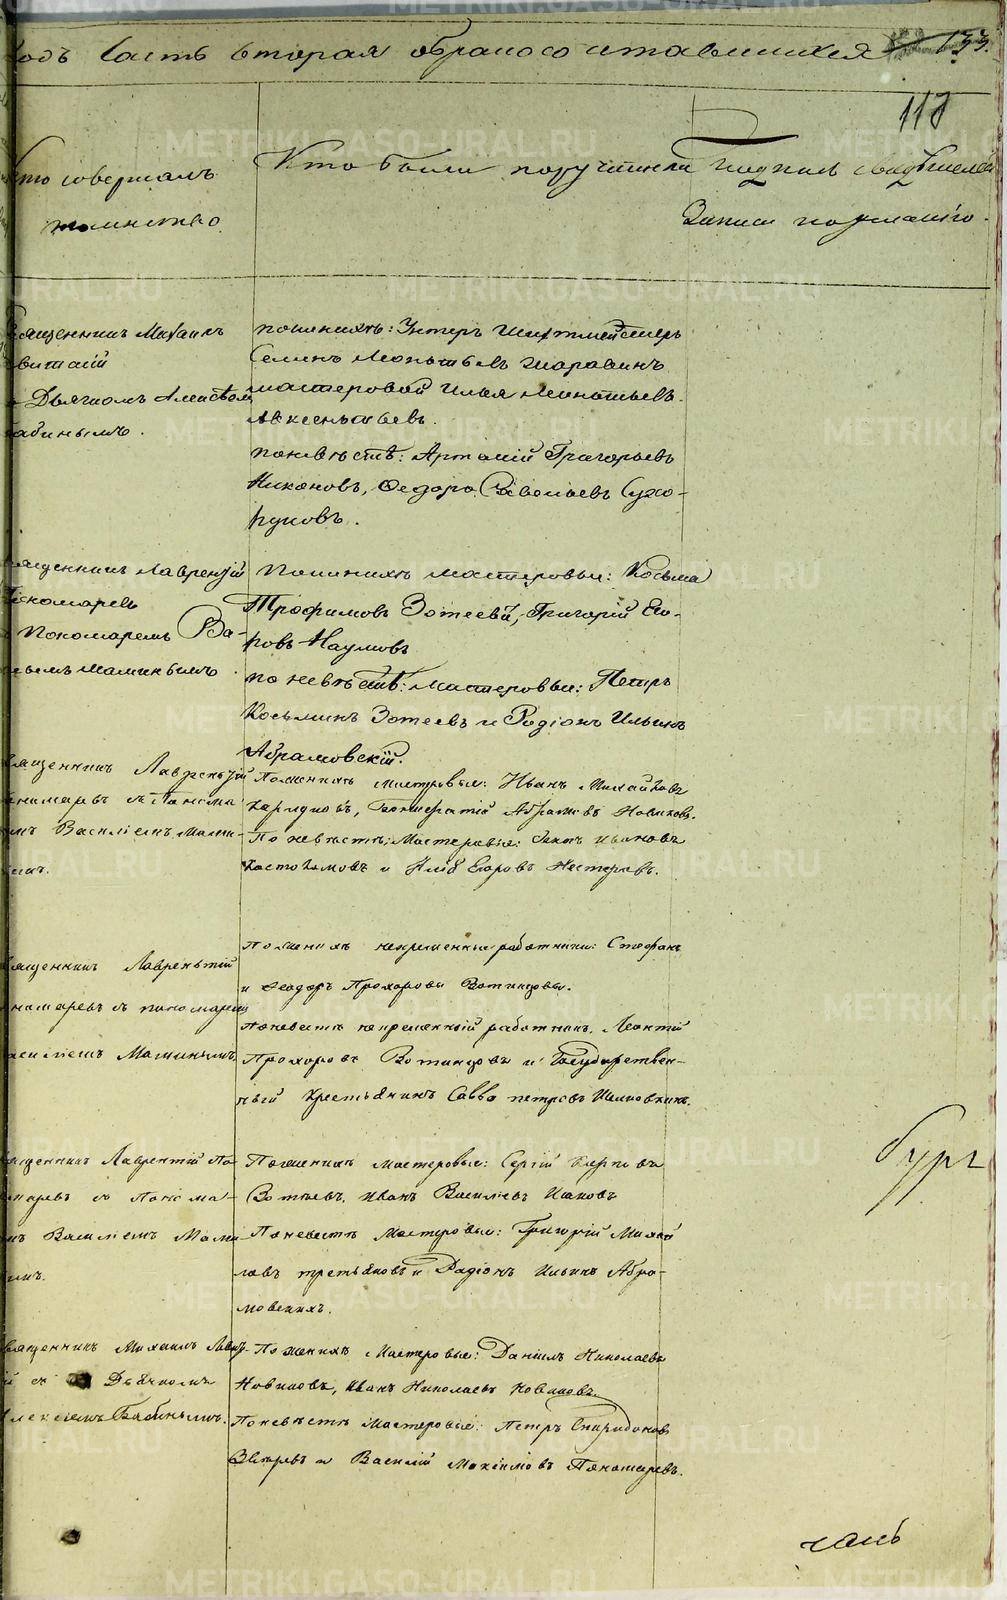 одъ Часть вторая о бракосочетавшихся 133
118
Кто совершалъ
таинство
Кто были поручители
Подпись свидѣтелей
записи по желанію.
Священникъ Михаилъ
Дьячкомъ Алексѣемъ
Бабинымъ.
По женихѣ: Унтеръ Шихтмейстеръ
Семенъ Леонтьевъ
мастеровой Илья Леонтьевъ
Авксентьевъ.
по невѣстѣ: Артамій Григорьевъ
Никоновъ, Федоръ Савельевъ Сухо-
руковъ.
священникъ Лаврентій
Пономаревъ
Пономаремъ Ва-
сильемъ Маминымъ.
По женихѣ мастеровые: Косьма
Трофимовъ Зотеевъ, Григорій Его-
ровъ Наумовъ
по невѣстѣ: Мастеровые: Петръ
Косьминъ Зотеевъ и Родіонъ Ильинъ
Абрамовскій.
Священникъ Лаврентій
Пономаревъ съ Понома-
мъ Василіемъ Мами-
нымъ.
По женихѣ мастеровые: Иванъ Михайловъ
Абрамовъ Новиковъ.
По невѣстѣ: Мастеровые: Ивановъ
Костокамовъ и Глѣбъ Егоровъ Нестеровъ.
Священникъ Лаврентій
Пономаревъ съ пономаремъ
Василіемъ Маминымъ.
По женихѣ непременные работники: Стефанъ
и Феодоръ Прохоровы Вотинцовы.
По невестѣ непременный работникъ Леонтій
Прохоровъ Вотинцовъ и Государствен-
ный крестьянинъ Савва Петровъ
Священникъ Лаврентій По-
номаревъ съ Понома-
мъ Василіемъ Мами-
нымъ.
По женихѣ мастеровые: Сергій Карповъ
Зотеевъ, Иванъ Василіевъ
По невестѣ Мастеровые: Григорій Михай
ловъ Третьяковъ и Радіонъ Ильинъ Абра-
мовскихъ.
бург
Священникъ Михаилъ
й съ Дьячкомъ
Алексіемъ Бабинымъ.
По женихѣ Мастеровые: Даніилъ Николаевъ
Новиковъ, Иванъ Николаевъ Новиковъ.
По невѣстѣ Мастеровые: Петръ Спиридоновъ
Зверевъ и Василій Максимовъ Пономаревъ.
METRIKI.GASO-URAL.RU